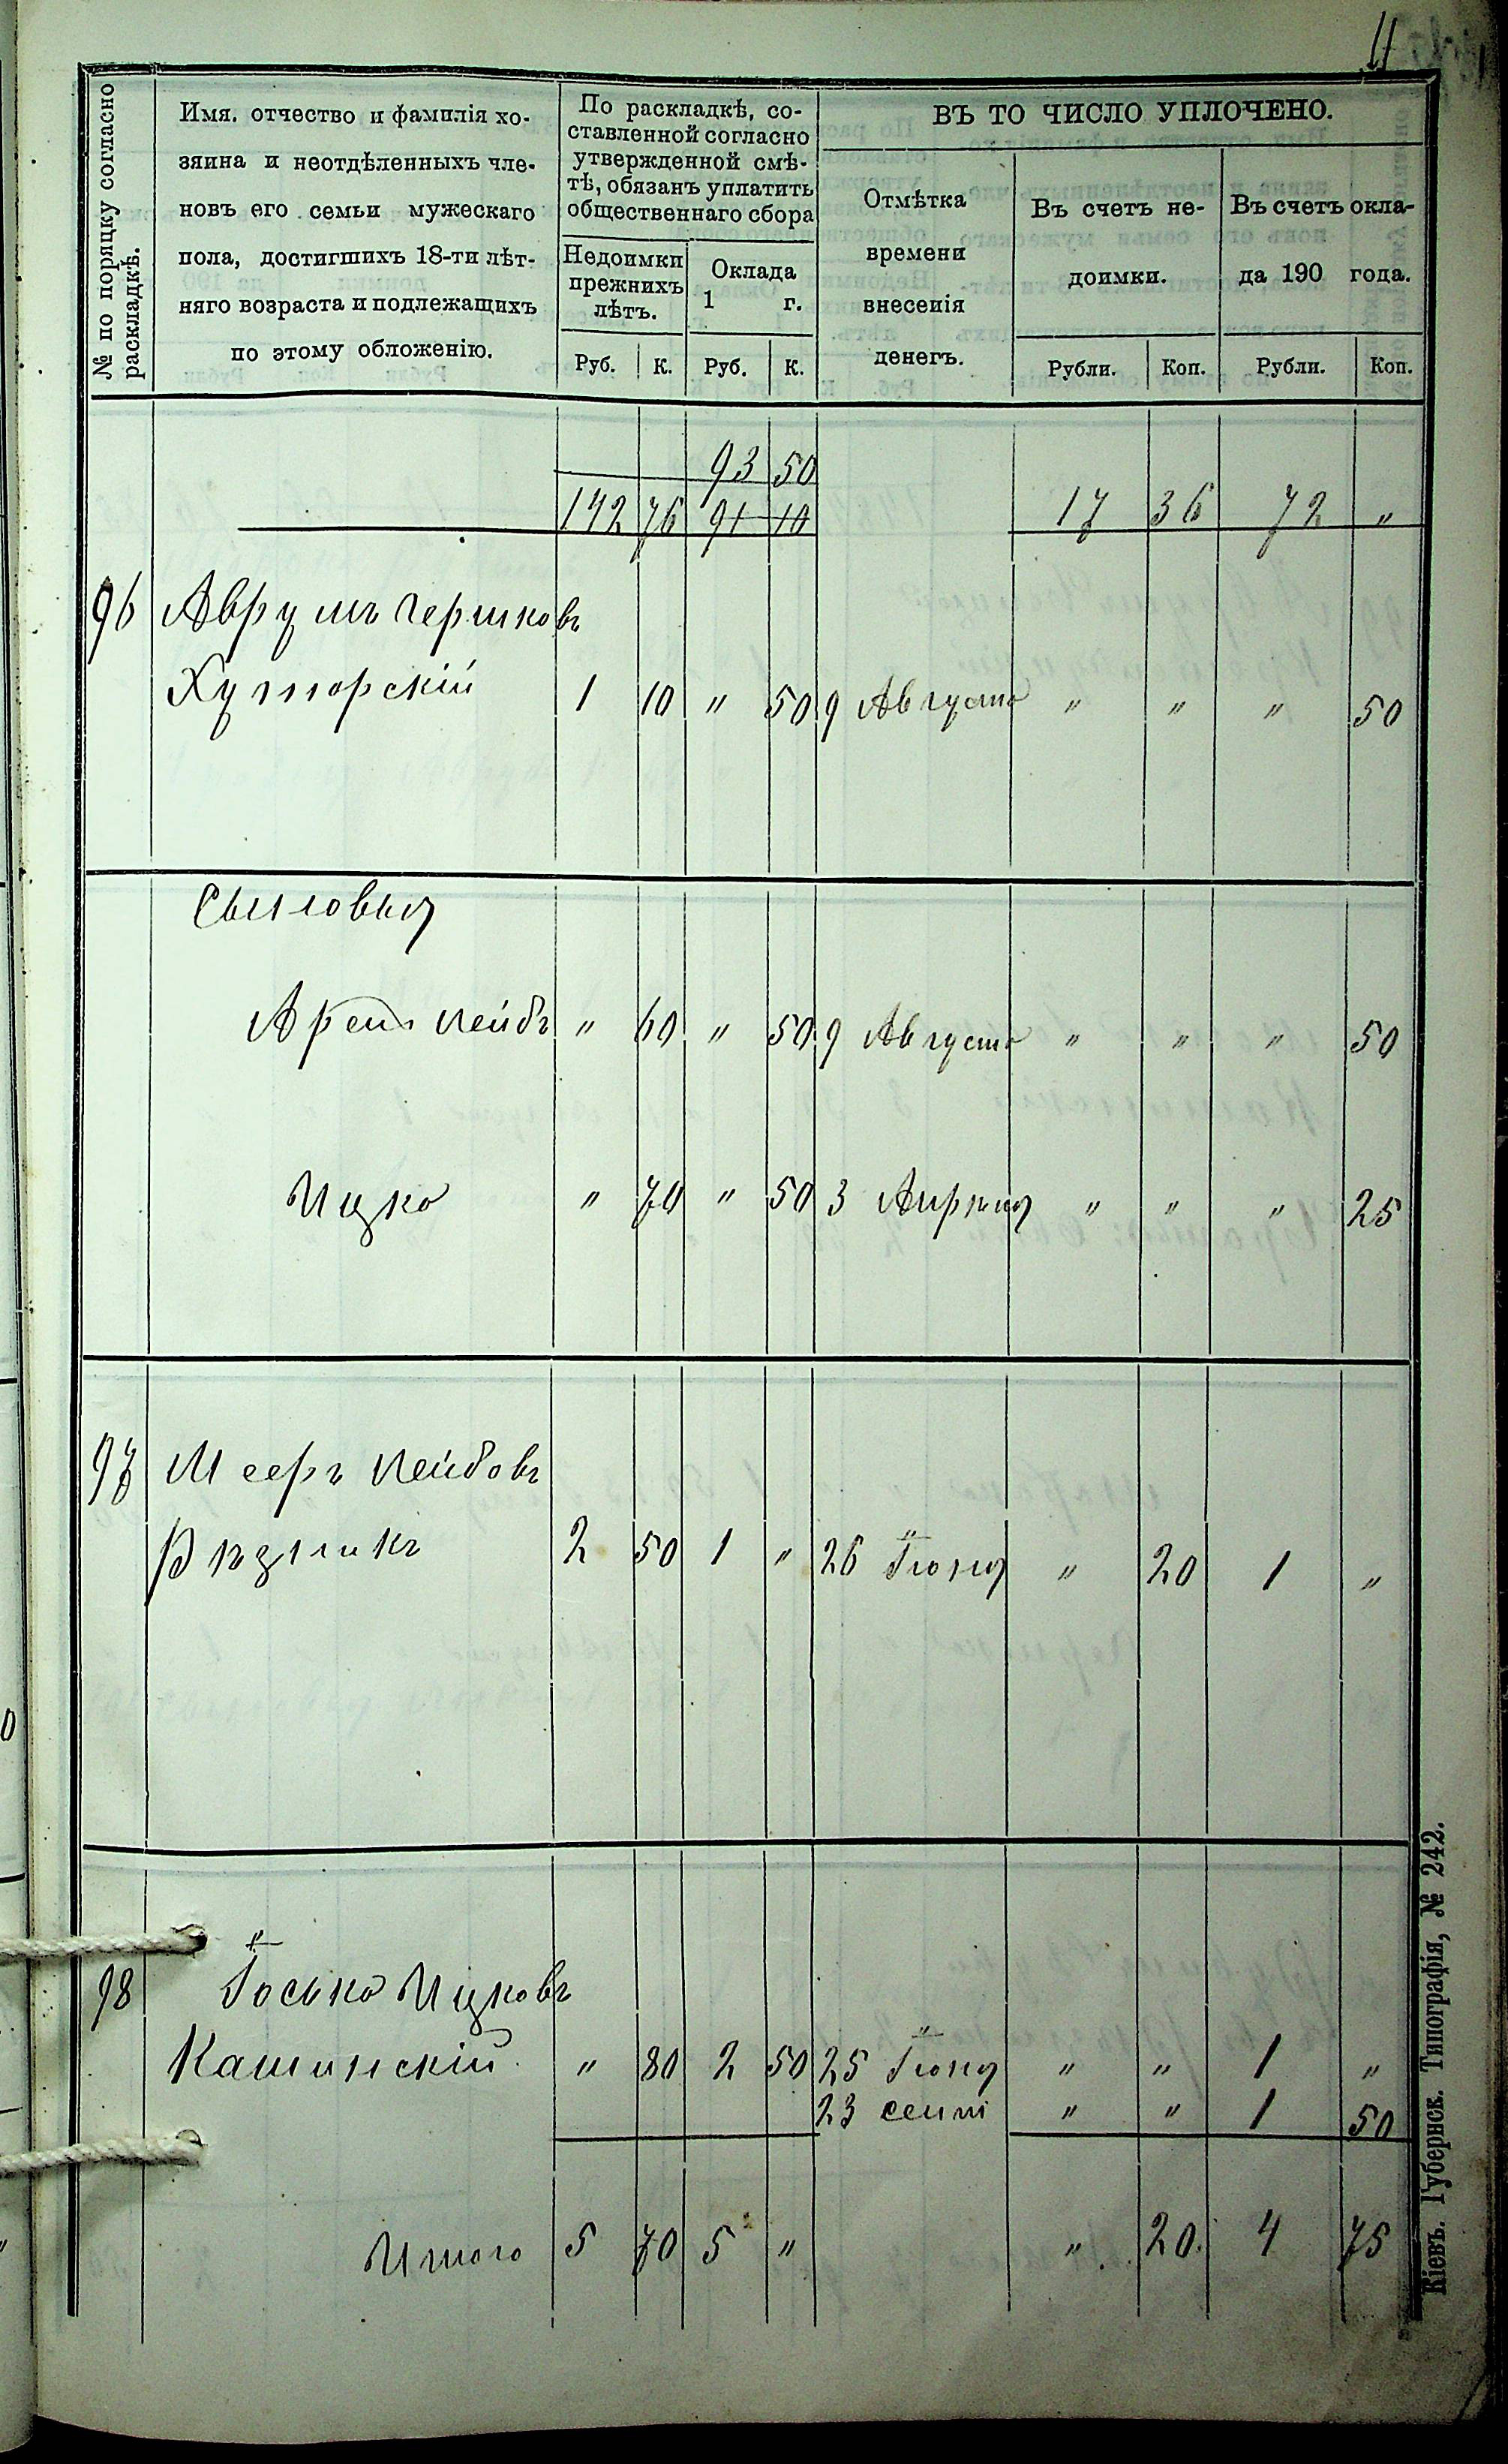 11
№ по поряцку согласно раскладкѣ.
Имя. отчество и фамилія хо-
зяина и неотдѣленныхъ чле-
новъ его семьи мужескаго
пола, достигшихъ 18-ти лѣт-
няго возраста и подлежащихъ
по этому обложенію.
По раскладкѣ, со-
ставленной согласно
утвержденной смѣ-
тѣ, обязанъ уплатить
общественнаго сбора
Недоимки
прежнихъ
лѣтъ.
Оклада
1 г.
Руб. К. Руб. К.
ВЪ ТО ЧИСЛО УПЛОЧЕНО.
Отмѣтка
времени
внесенія
денегъ.
Въ счетъ не-
доимки.
Въ счетъ окла-
да 190 года.
Рубли. Коп. Рубли. Коп.
93 50
142 76 91 10 17 36 72 "
96 Аврумъ Гершковъ
Хуторскій 1 10 " 50 9 Августа " " " 50
Сыновья
Аронъ Лейбъ " 60 " 50 9 Августа " " " 50
Ицко " 70 " 50 3 Апрѣля " " " 25
97 Мееръ Лейбовъ
2 50 1 " 26 Іюня " 20 1 "
98 Іосько Ицковъ
Кашинскій " 80 2 50 25 Іюня " " 1 "
23 сент " " 1 50
Итого 5 70 5 " " 20 4 75
Кіевъ. Губернск. Типографія, № 242.